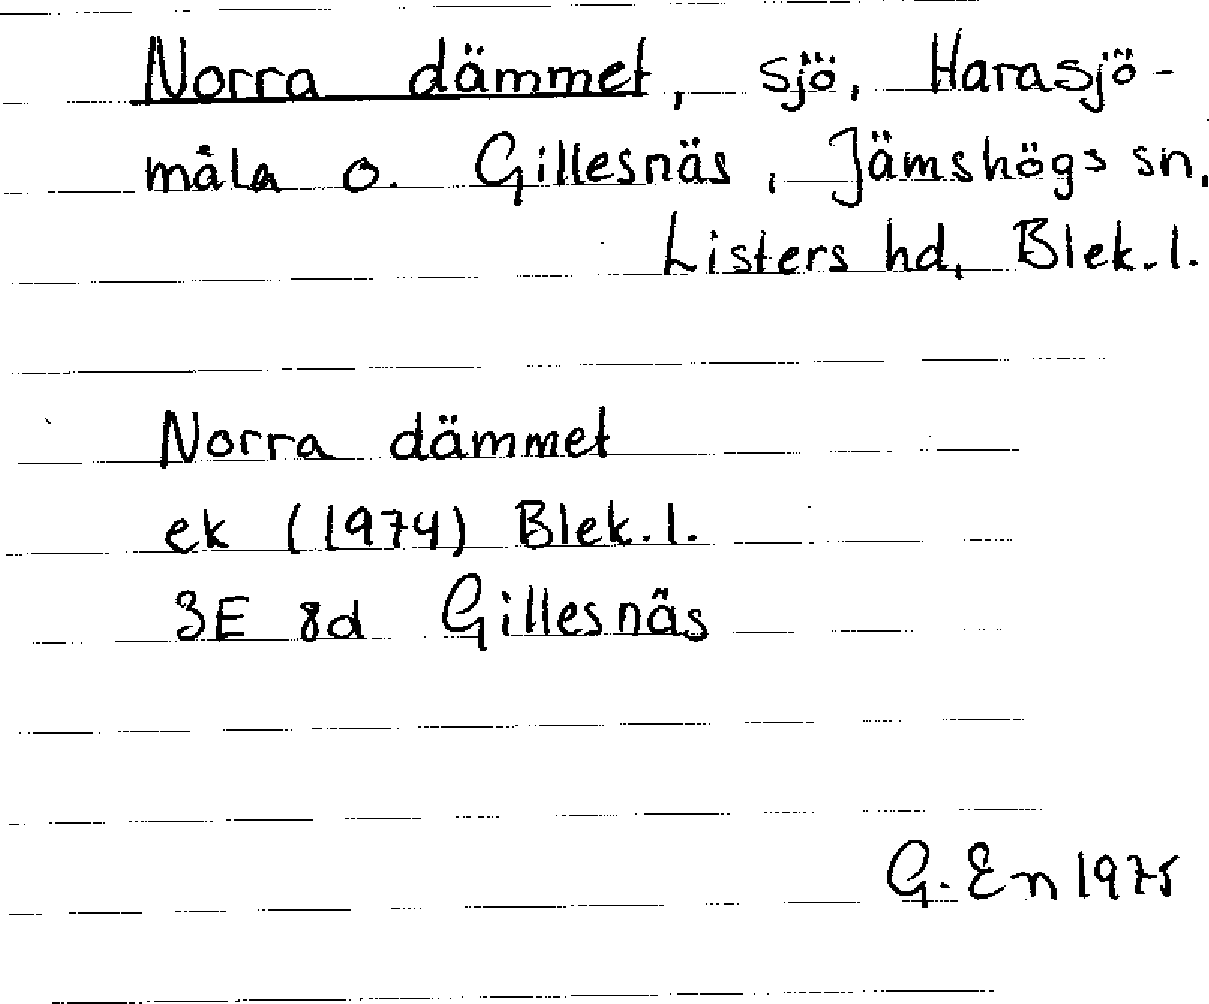 Norra dämmet, sjö, Harasjö-
måla o. Gillesnäs, Jämshögs sn.
Listers hd, Blek.l.
Norra dämmet
ek (1974) Blek.l.
3E 8d Gillesnäs
G. En 1975